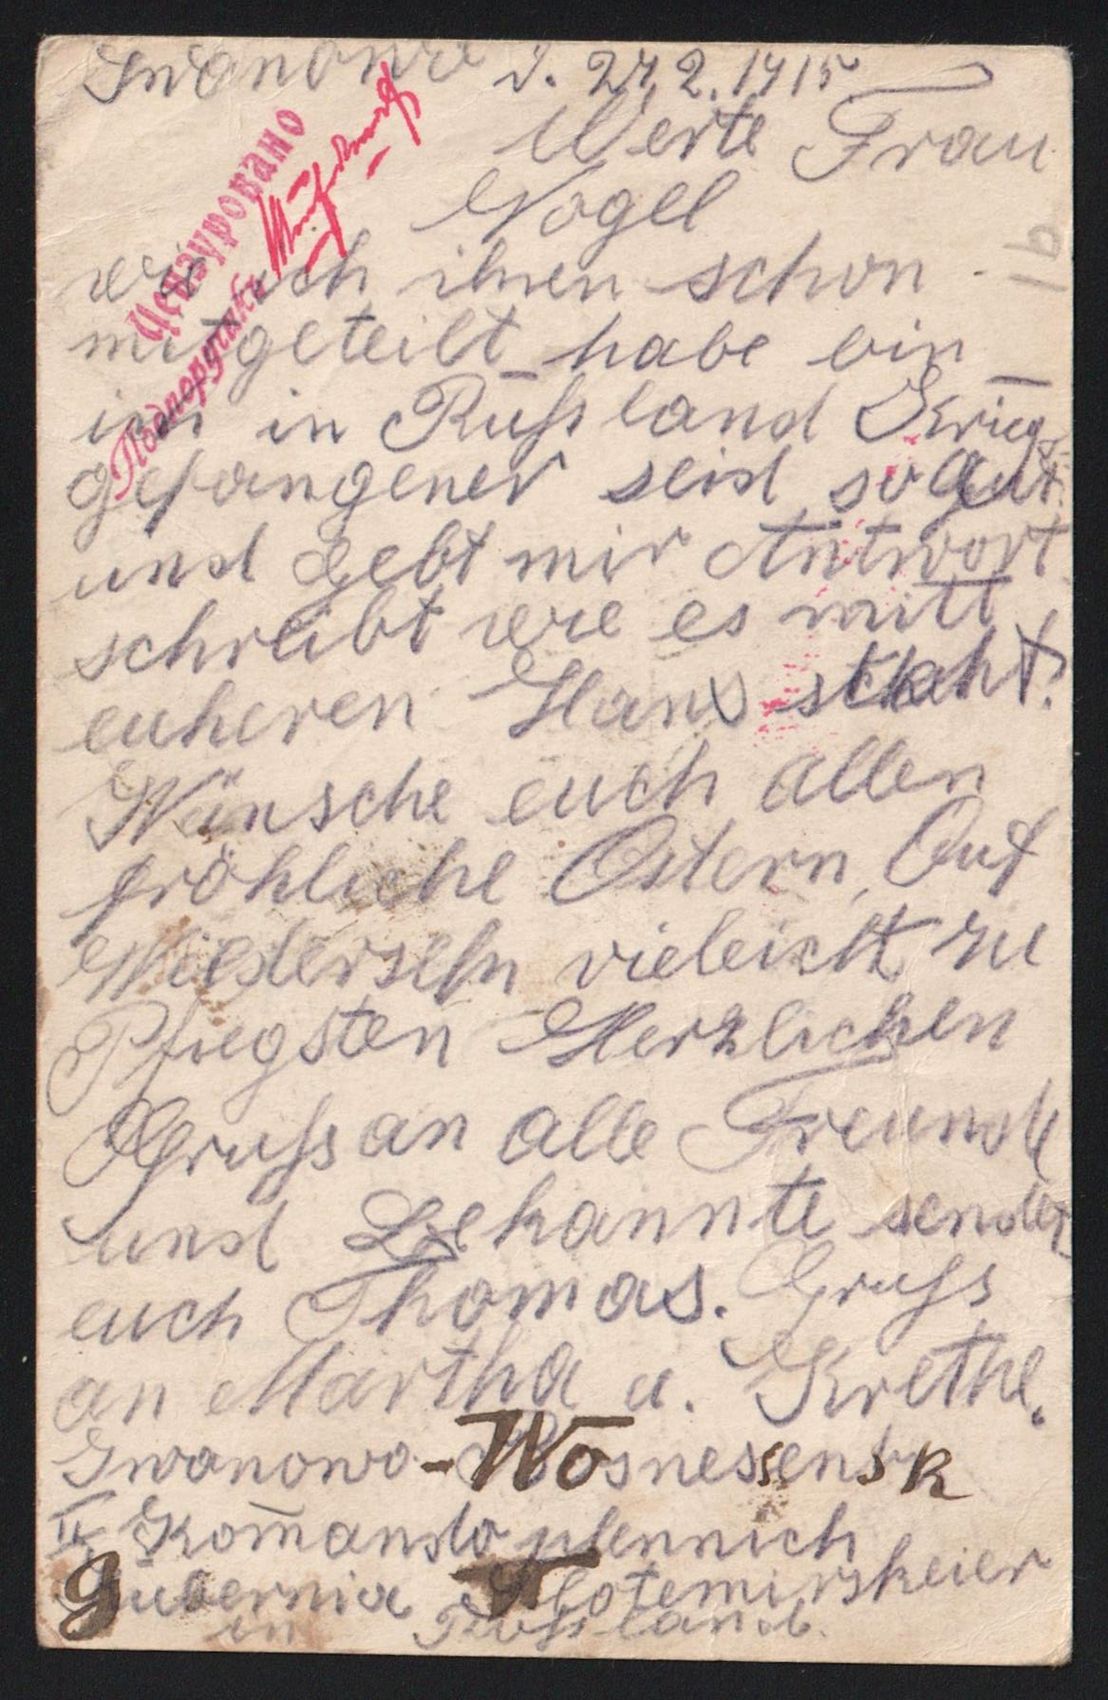 Iwanowo d. 27.2.1915
Werte Frau
Vogel
wie ich ihnen schon
mitgeteilt habe bin
ich in Russland Kriegs
gefangener seid so gut
und gebt mir Antwort
schreibt wie es mitt
euheren Hans steht.
Wünsche euch allen
fröhliche Ostern, Auf
Wiedersehn vieleicht zu
Pfiegsten Herzlichen
Gruss an alle Freunde
und Bekannte sendet
euch Thomas. Gruss
an Martha u. Krethe.
Iwanowo-Wosnessensk
II Komando plennich
Gubernia
in Russland.
Цензуровано
Подпоручикъ
16